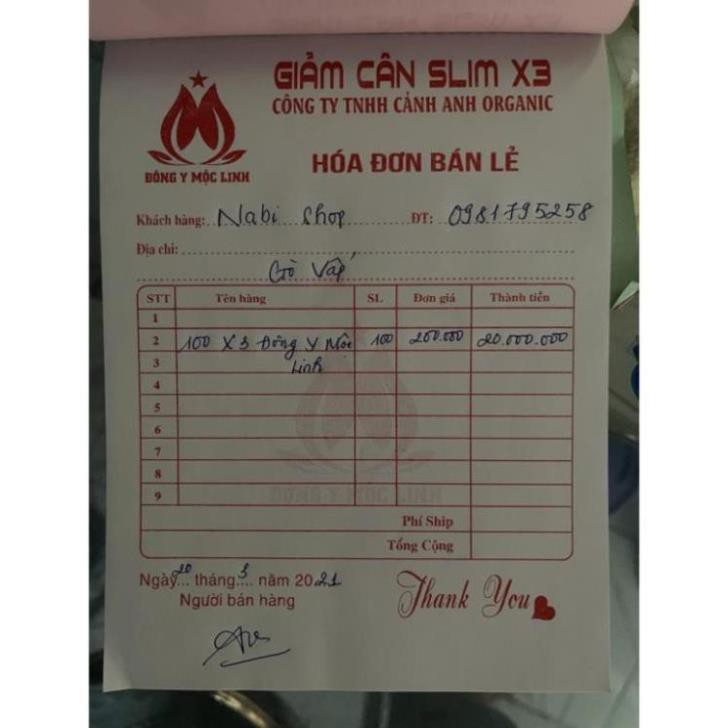 GIẢM CÂN SLIM X3
CÔNG TY TNHH CẢNH ANH ORGANIC
ĐÔNG Y MỘC LINH
HÓA ĐƠN BÁN LẺ
Khách hàng: Nabi Shop ĐT: 0981795258
Địa chỉ:
Gò Vấp
STT Tên hàng SL Đơn giá Thành tiền
1
2 100 X3 Đông Y Mộc 100 200.000 20.000.000
3 Linh
4
5
6
7
8
ĐÔNG Y MỘC LINH
9
Phí Ship
Tổng Cộng
Ngày 20 tháng 3 năm 2021
Thank You
Người bán hàng